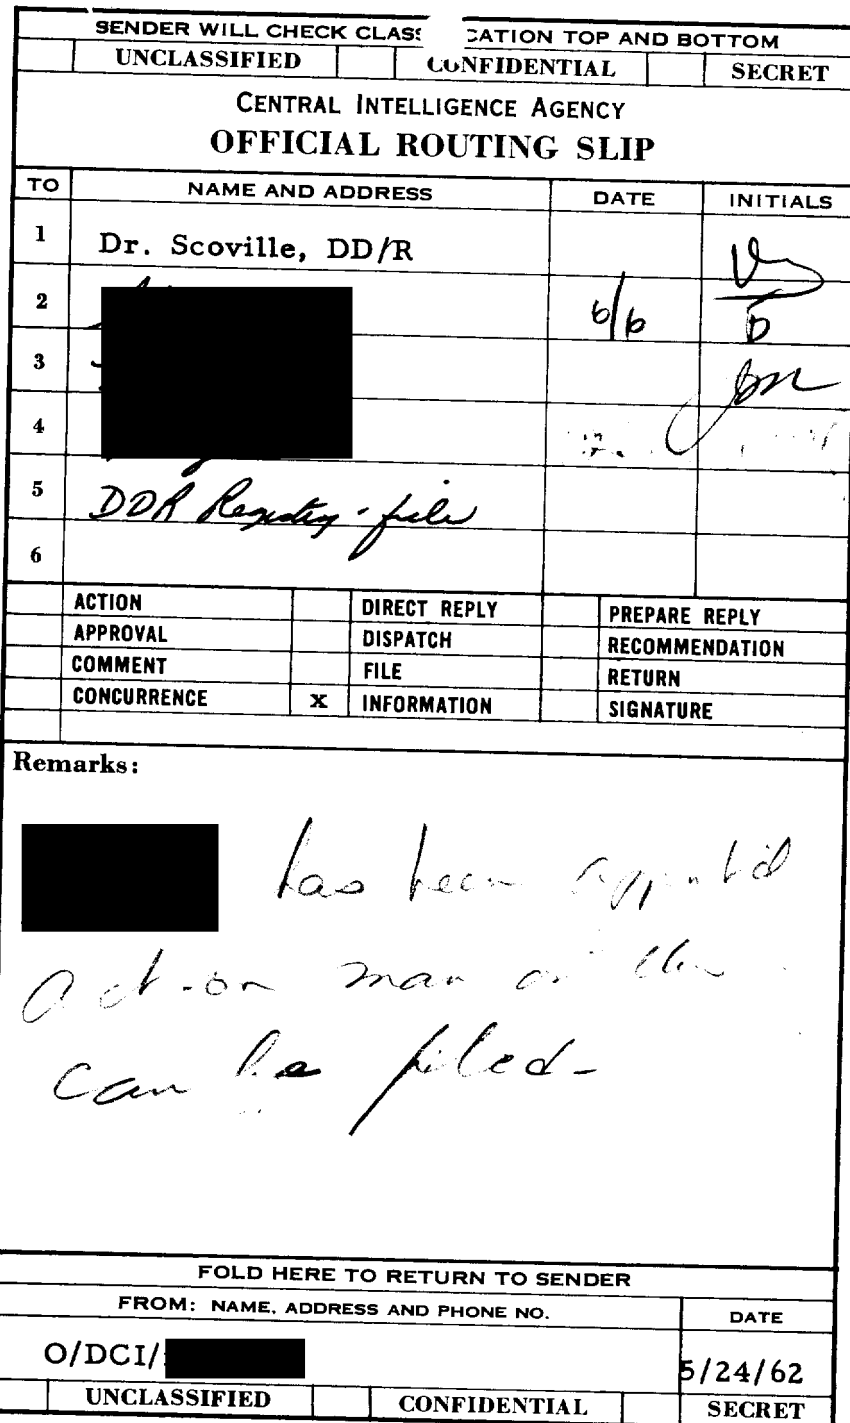 SENDER WILL CHECK CLASS CATION TOP AND BOTTOM
UNCLASSIFIED CONFIDENTIAL SECRET
CENTRAL INTELLIGENCE AGENCY
OFFICIAL ROUTING SLIP
TO NAME AND ADDRESS DATE INITIALS
1 Dr. Scoville, DD/R
2 6/6
3
4
5 DDR Registry - file
6
ACTION DIRECT REPLY PREPARE REPLY
APPROVAL DISPATCH RECOMMENDATION
COMMENT FILE RETURN
CONCURRENCE X INFORMATION SIGNATURE
Remarks:
has been appointed
action man on this
can be filed-
FOLD HERE TO RETURN TO SENDER
FROM: NAME, ADDRESS AND PHONE NO. DATE
O/DCI/ 5/24/62
UNCLASSIFIED CONFIDENTIAL SECRET